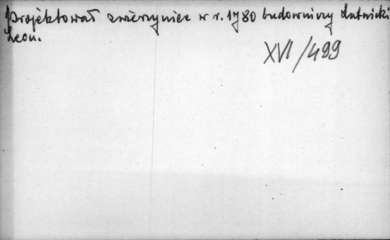 Projektował zwierzyniec w r. 1780 budowniczy Lutnicki
Leon.
XVI/499